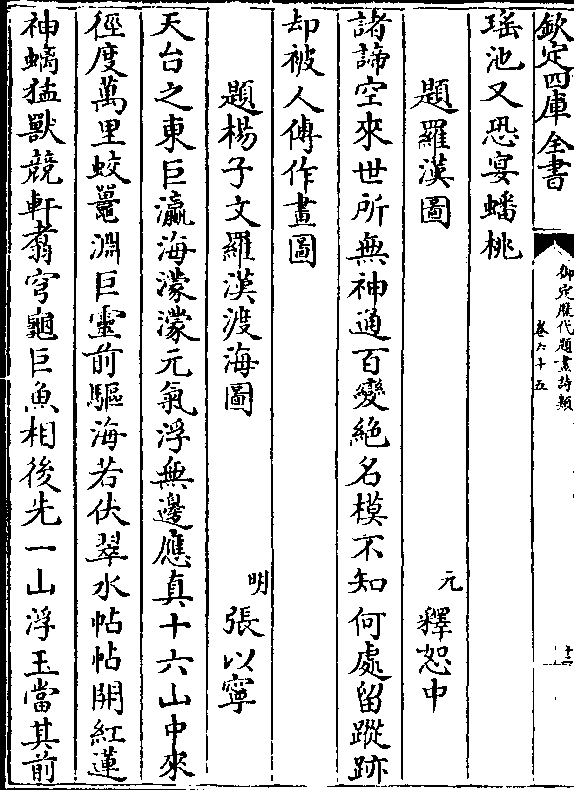 欽定四庫全書
御定歷代題畫詩類
卷六十五
十二
瑶池又恐宴蟠桃
題羅漢圖
元
釋恕中
諸諦空來世所無神通百變絶名模不知何處留蹤跡
却被人傳作畫圖
題楊子文羅漢渡海圖
明
張以寧
天台之東巨瀛海濛濛元氣浮無邊應真十六山中來
徑度萬里蛟鼉淵巨靈前驅海若伏翠水帖帖開紅蓮
神螭猛獸競軒翥穹龜巨魚相後先一山浮玉當其前